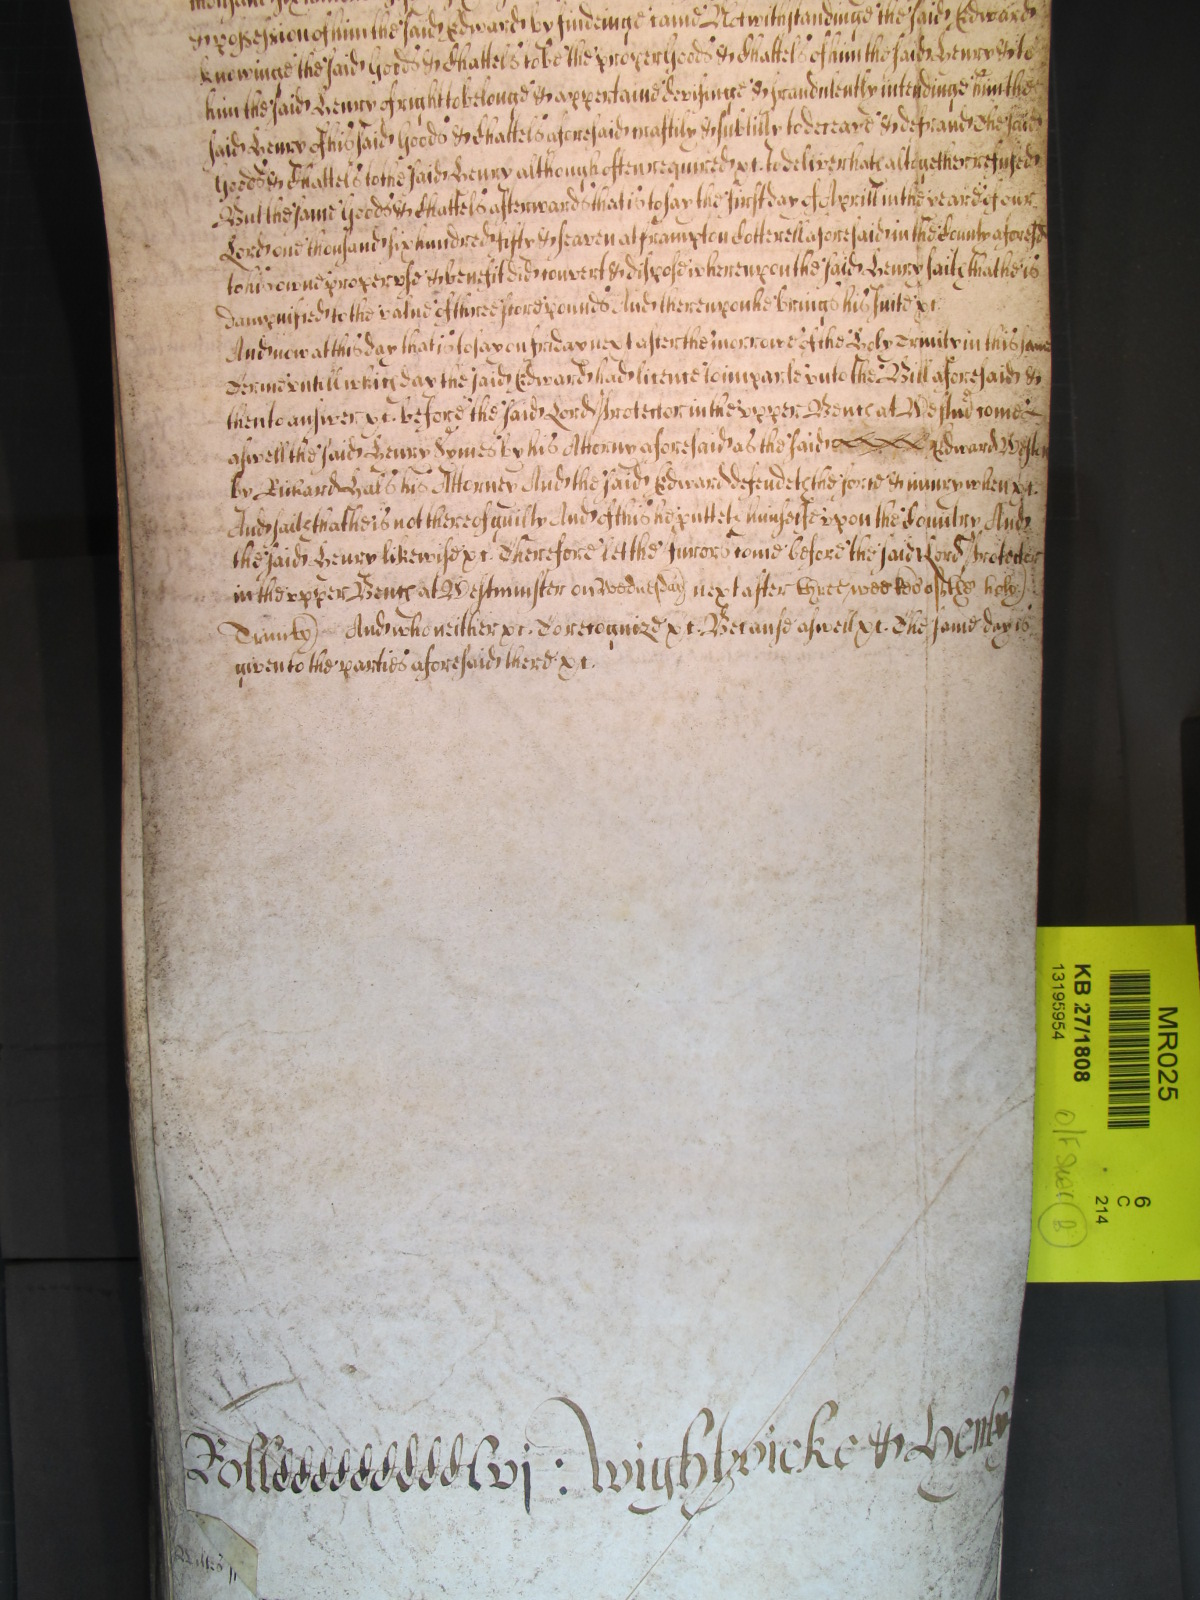 & possession of him the said Edward by findeinge came Notwithstandinge the said Edward
knowinge the said Goods & Chattels to be the proper Goods & Chattels of him the said Henry & to
him the said Henry of right to belonge & appertaine devisinge & fraudulently intendinge him the
said Henry of his said Goods & Chattels aforesaid craftily & subtilly to deceave & defraud The said
Goods & Chattels to the said Henry although often required &c. to deliver hath altogether refused
But the same Goods & Chattels afterwards that is to say the first day of Aprill in the yeare of our
Lord one thousand six hundred fifty & seaven at Frampton Cotterell aforesaid in the County aforesd
to his owne proper use & benefit did convert & dispose whereupon the said Henry saith that he is
dampnified to the value of three score pounds And thereupon he brings his suite &c.
And now at this day that is to say on fryday next after the morrowe of the Holy Trinity in this same
Terme untill which day the said Edward had licence to imparle unto the Bill aforesaid &
then to answer &c. before the said Lord Protector in the upper Bench at Westm come
aswell the said Henry Symes by his Attorny aforesaid as the said Edward Weston
by Richard Hals his Attorney And the said Edward defendeth the force & iniury when &c.
And saith that he is not thereof guilty And of this he putteth himselfe upon the Country And
the said Henry likewise &c. Therefore let the Jurors come before the said Lord Protector
in the upper Bench at Westminster on Wednesday next after three weekes of the holy
Trinity And who neither &c. To recognize &c. Because aswell &c. The same day is
given to the parties aforesaid there &c.
Roll dddddddddlvj : Wightwicke & Henly
MR025
KB 27/1808
13195954
6
C
214